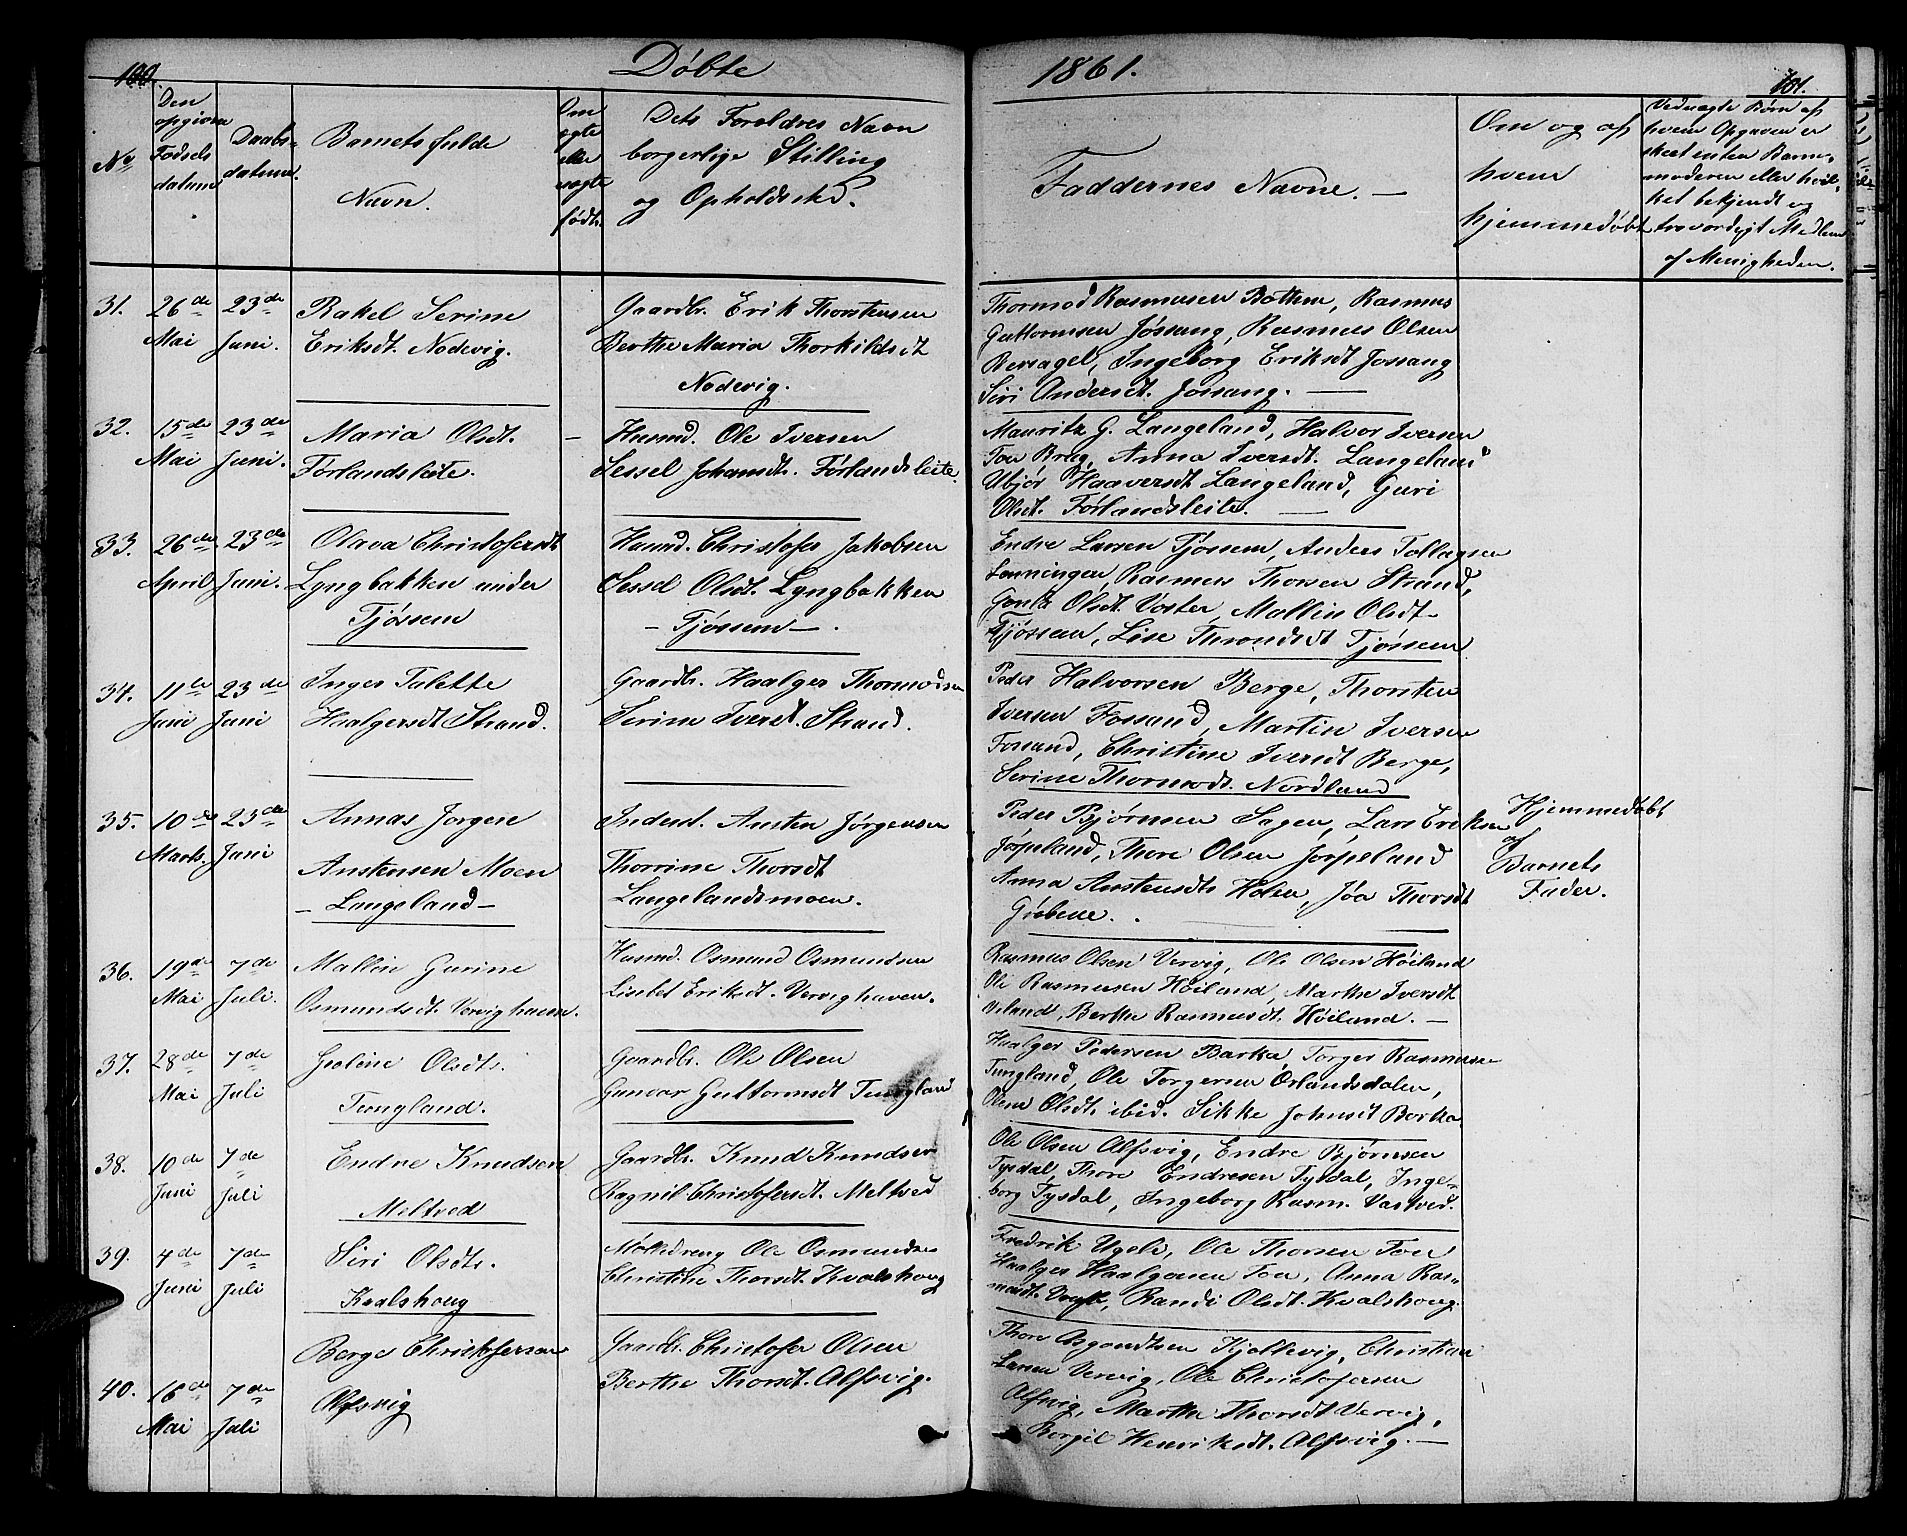 100. Døbte 1861. 101.
No
Den opgivne Fødsels datum
Daabs-datum.
Barnets fulde Navn.
Om ægte eller uægte født.
Dets Forældres Navn borgerlige Stilling og Opholdssted.
Faddernes Navne. —
Om og af hvem hjemmedøbt
Vedrøgte Børn af hvem Opgaven er skeet enten Barne-moderen eller hvil-ket bekjendt og troværdigt Medlem af Menigheden.
31. 26de Mai 23de Juni.
Rakel Serine
Eriksdt. Nodevig.
Gaardbr. Erik Thorstensen
Berthe Maria Thorkildsdt
Nodevig.
Thormod Rasmusen Bottem, Rasmus
Guttormsen Jøssang, Rasmus Olsen
Bersagel, Ingeborg Eriksdt Jossang
Siri Andersdt. Jossang. —
32. 15de Mai 23de Juni.
Maria Olsdt.
Førlandsleite.
Husmd. Ole Iversen
Sessel Johansdt. Førlandsleite.
Mauritz G. Langeland, Halvor Iversen
Tou Brug, Anna Iversdt. Langeland
Ubjør Haaversdt Langeland, Guri
Olsdt. Førlandsleite. —
33. 26de April 23de Juni.
Olava Christofersdt
Lyngbakken under
Tjøssem
Husmd. Christofer Jakobsen
Sessel Olsdt. Lyngbakken
— Tjøssem —.
Endre Larsen Tjøssem, Anders Tollagsen
Lønningen, Rasmus Thorsen Strand,
Olsdt. Voster, Mallin Olsdt
Tjøssem, Lise Throndsdt Tjøssem
34. 11te Juni 23de Juni
Inger Talette
Haalgersdt Strand.
Gaardbr. Haalger Thormodsen
Serine Iversdt. Strand.
Peder Halvorsen Berge, Thorsten
Iversen Fossand, Martin Iversen
Fossand, Christine Iversdt Berge,
Serine Thormodt. Nordland
35. 10de Marts. 23de Juni
Annas Jorgen
Austensen Moen
— Langeland —
Inderst. Austen Jørgensen
Thorrine Thorsdt
Langelandsmoen.
Peder Bjørnsen Sagen, Lars Eriksen
Jørpeland, Thore Olsen Jørpeland
Anna Austensdt. Holen, Jøa Thorsdt
Grøbene.
Hjemmedøbt
af
Barnets
Fader.
36. 19de Mai 7de Juli.
Mallin Gurine
Osmundsdt. Vervighavn.
Husmd. Osmund Osmundsen
Lisebet Eriksdt. Vervighaven.
Rasmus Olsen Vervig, Ole Olsen Høiland
Ole Rasmusen Høiland, Marthe Iversdt
Veland, Berthe Rasmusdt. Høiland. —
37. 28de Mai 7de Juli
Olsdt.
Tungland.
Gaardbr. Ole Olsen
Gunvor Guttormsdt Tungland
Haalger Pedersen Barka, Torger Rasmusen
Tungland, Ole Torgersen Ørlandsdalen,
Olene Olsdt. ibid. Sikke Johnsdt Borka.
38. 10de Juni 7de Juli
Endre Knudsen
Meltved
Gaardbr. Knud Knudsen
Ragnil Christofersdt. Meltved
Ole Olsen Alfsvig, Endre Bjørnsen
Tysdal, Thore Endresen Tysdal, Inge-
borg Tysdal, Ingeborg Rasm. Vastved.
39. 4de Juni 7de Juli
Siri Olsdt.
Kvalshoug
Ole Osmundsen
Christine Thorsdt. Kvalshoug
Fredrik Ugels, Ole Thorsen Tou
Haalger Haalgersen Tou, Anna Ras-
musdt. Randi Olsdt. Kvalshoug.
40. 16de Mai 7de Juli
Berge Christofersen
Alfsvig
Gaardbr. Christofer Olsen
Berthe Thorsdt. Alfsvig.
Thore Asgoudtsen Kjølevig, Christian
Larsen Vervig, Ole Christofersen
Alfsvig, Marthe Thorsdt Vervig,
Borgil Henriksdt. Alfsvig. —